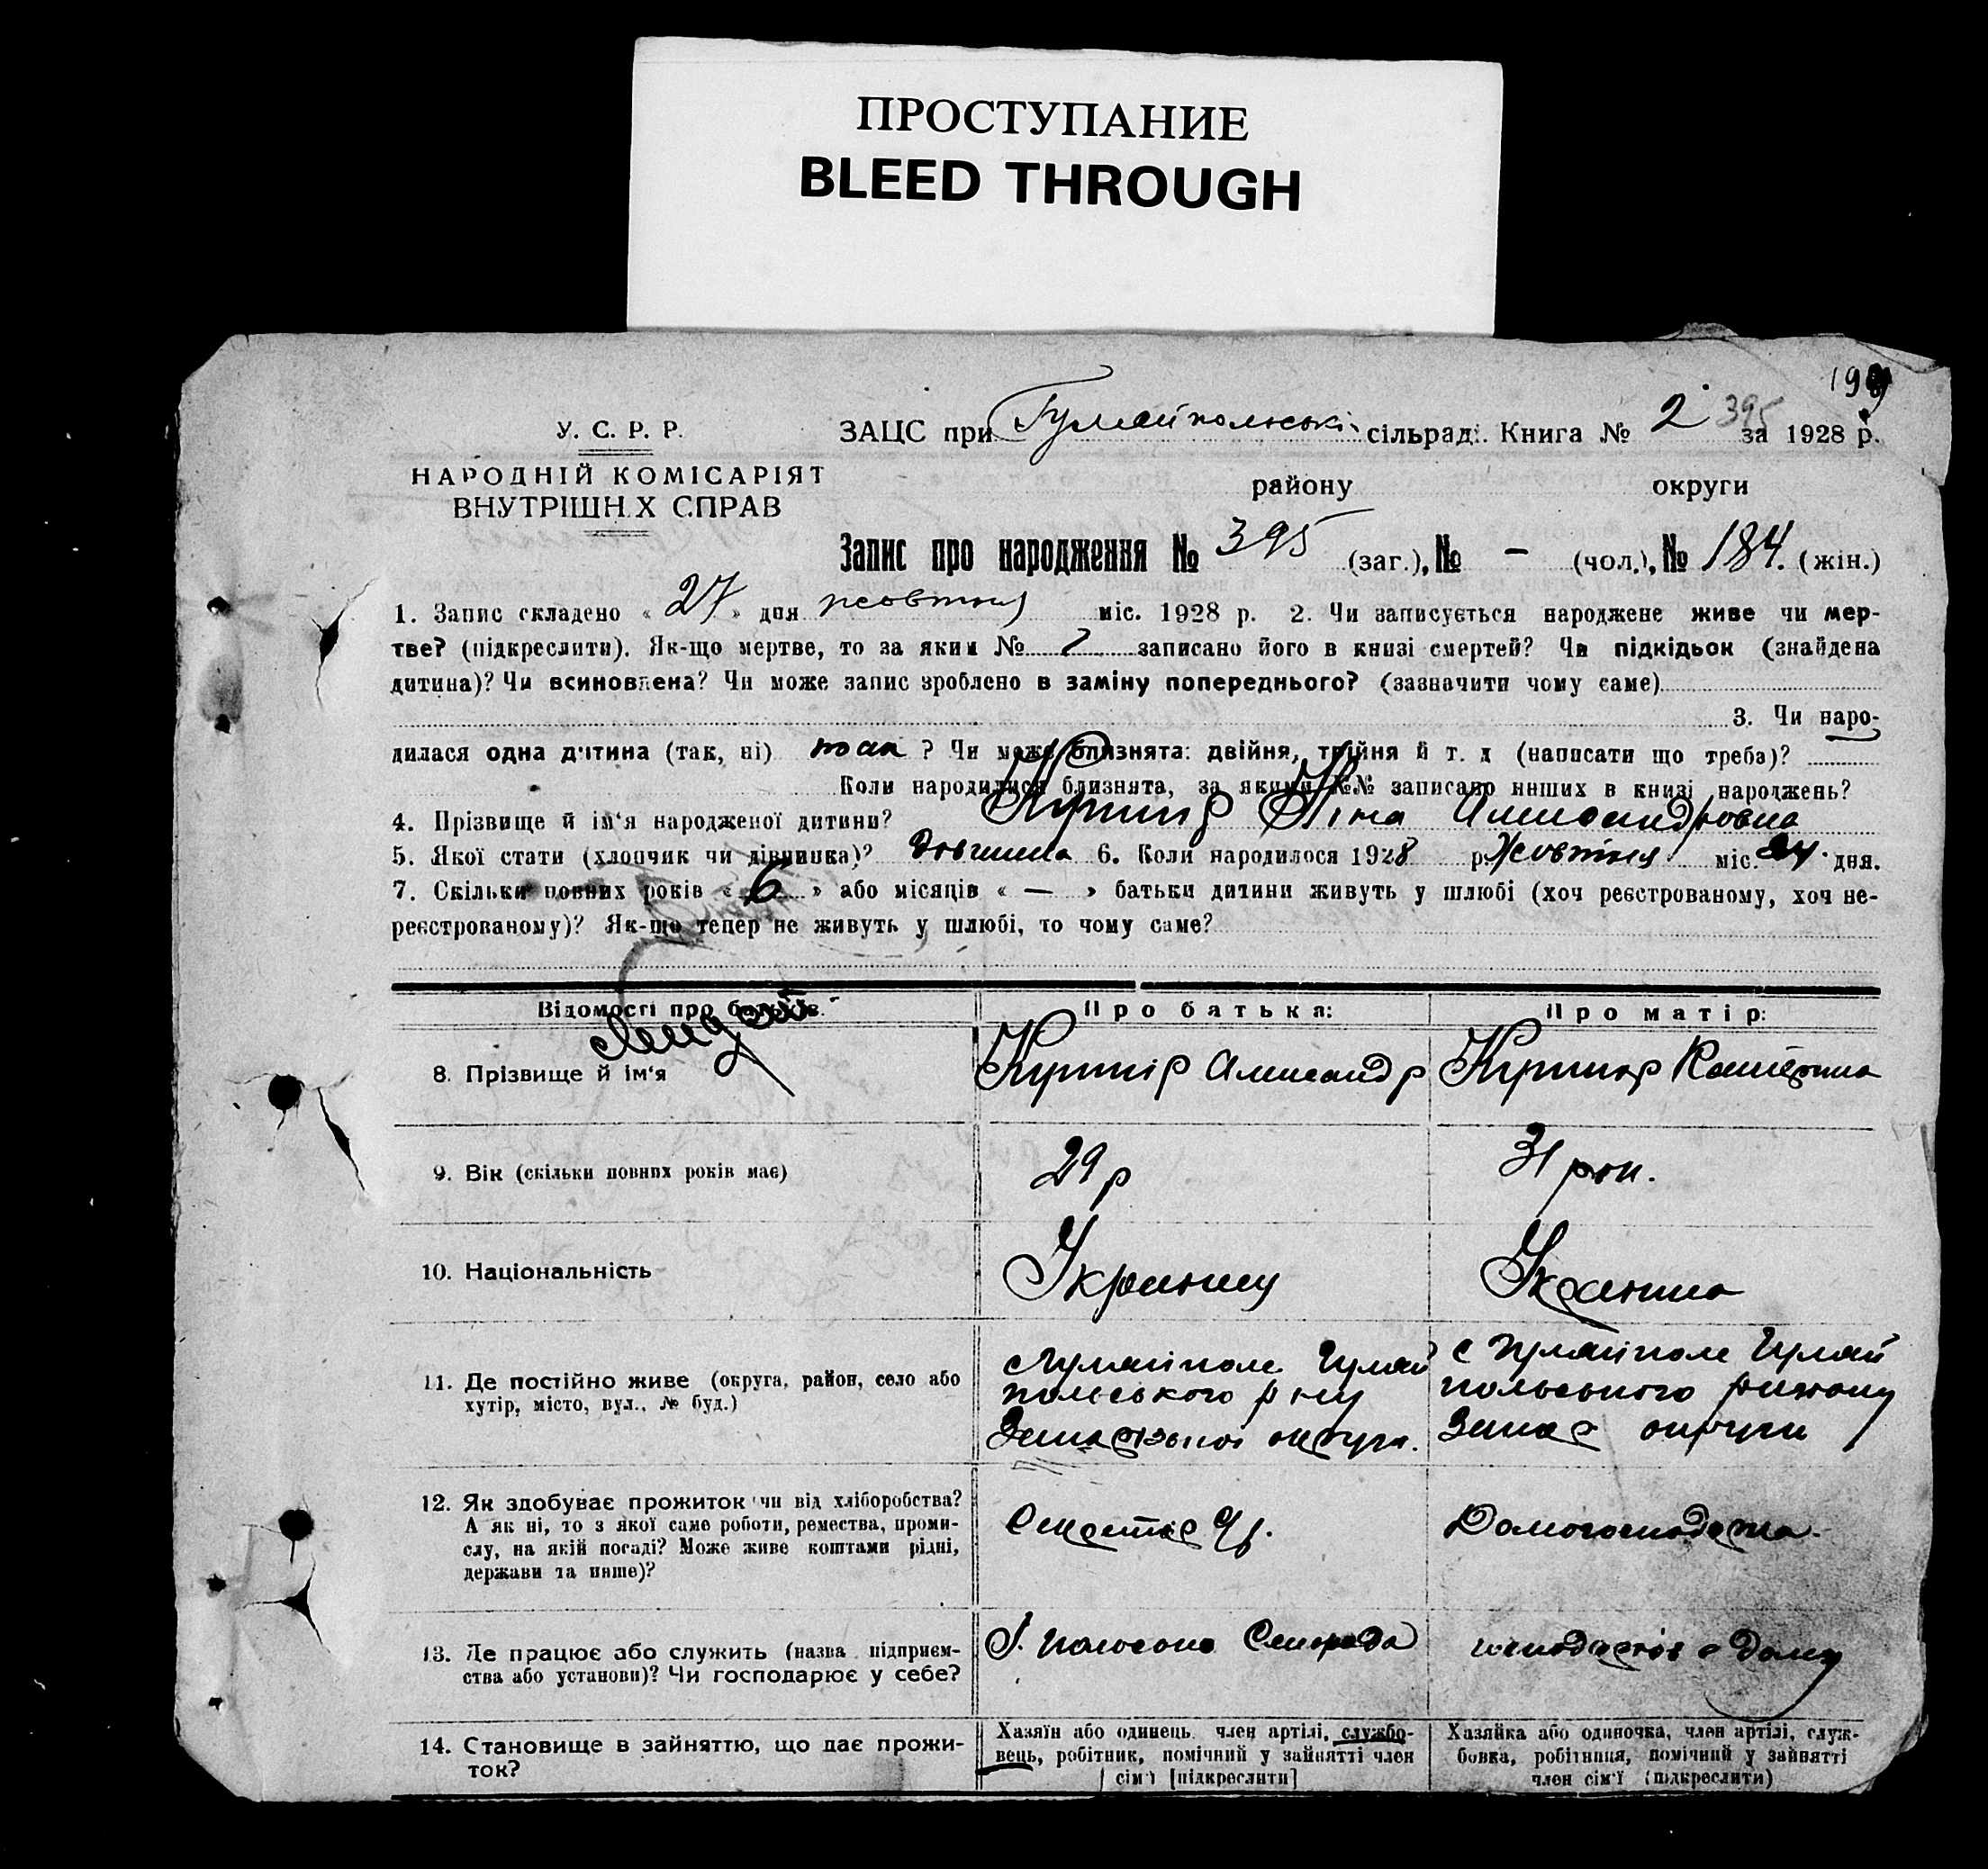 ПРОСТУПАНИЕ
BLEED THROUGH
199
395
У. С. Р. Р.
НАРОДНІЙ КОМІСАРІЯТ
ВНУТРІШН.Х СПРАВ
ЗАЦС при Гуляйпольські сільраді. Книга № 2 за 1928 р.
району округи
Запис про народження № 395 (заг.), № – (чол.), № 184. (жін.)
1. Запис складено « 27 » дня жовтня міс. 1928 р. 2. Чи записується народжене живе чи мер-
тве? (підкреслити). Як-що мертве, то за яким № записано його в книзі смертей? Чи підкідьок (знайдена
дитина)? Чи всиновлена? Чи може запис зроблено в заміну попереднього? (зазначити чому саме)
3. Чи наро-
дилася одна дитина (так, ні) так ? Чи може близнята: двійня, трійня й т. д (написати що треба)?
Коли народилися близнята, за якими №№ записано инших в книзі народжень?
4. Прізвище й ім'я народженої дитини? Ніна Александровна
5. Якої стати (хлопчик чи дівчинка)? дівчинка 6. Коли народилося 1928 р. Жовтня міс. 24 дня.
7. Скільки повних років « 6 » або місяців « — » батьки дитини живуть у шлюбі (хоч реєстрованому, хоч не-
реєстрованому)? Як-що тепер не живуть у шлюбі, то чому саме?
Відомості про батьків. Про батька: Про матір:
8. Прізвище й ім'я Александр Катерина
9. Вік (скільки повних років має) 29 р 31 рок.
10. Національність Українец Українка
11. Де постійно живе (округа, район, село або
хутір, місто, вул., № буд.)
с Гуляйполе Гуляй
польського р ну
Запорізької округи.
с Гуляйполе Гуляй
польського району
Запор округи
12. Як здобуває прожиток чи від хліборобства?
А як ні, то з якої саме роботи, ремества, проми-
слу, на якій посаді? Може живе коштами рідні,
держави та инше)?
Секретар
Домогосподарка
13. Де працює або служить (назва підприєм-
ства або установи)? Чи господарює у себе?
Сільрада
дому
14. Становище в зайняттю, що дає прожи-
ток?
Хазяїн або одинець член артілі, службо-
вець, робітник, помічний у зайнятті член
сім'ї [підкреслити]
Хазяйка або одиночка, член артілі, служ-
бовка, робітниця, помічний у зайнятті
член сім'ї (підкреслити)